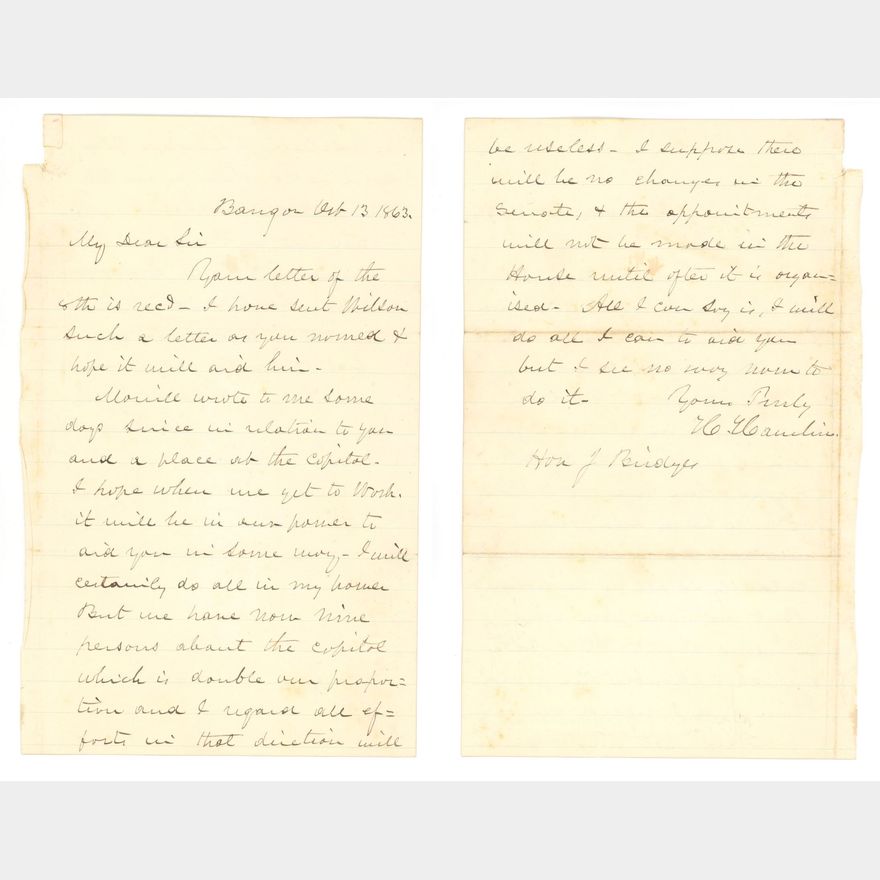 Bangor Oct 13 1863.
My Dear Sir
Your letter of the
8th is recd - I have sent Wilson
such a letter as you named &
hope it will aid him -
Morrill wrote to me some
days since in relation to you
and a place at the Capitol -
I hope when we get to Wash.
it will be in our power to
aid you in some way - I will
certainly do all in my power
But we have now nine
persons about the Capitol
which is double our propor=
tion and I regard all ef=
forts in that direction will
be useless - I suppose there
will be no changes in the
Senate, & the appointments
will not be made in the
House until after it is organ=
ised - All I can say is, I will
do all I can to aid you
but I see no way now to
do it - Yours Truly
H Hamlin.
Hon J